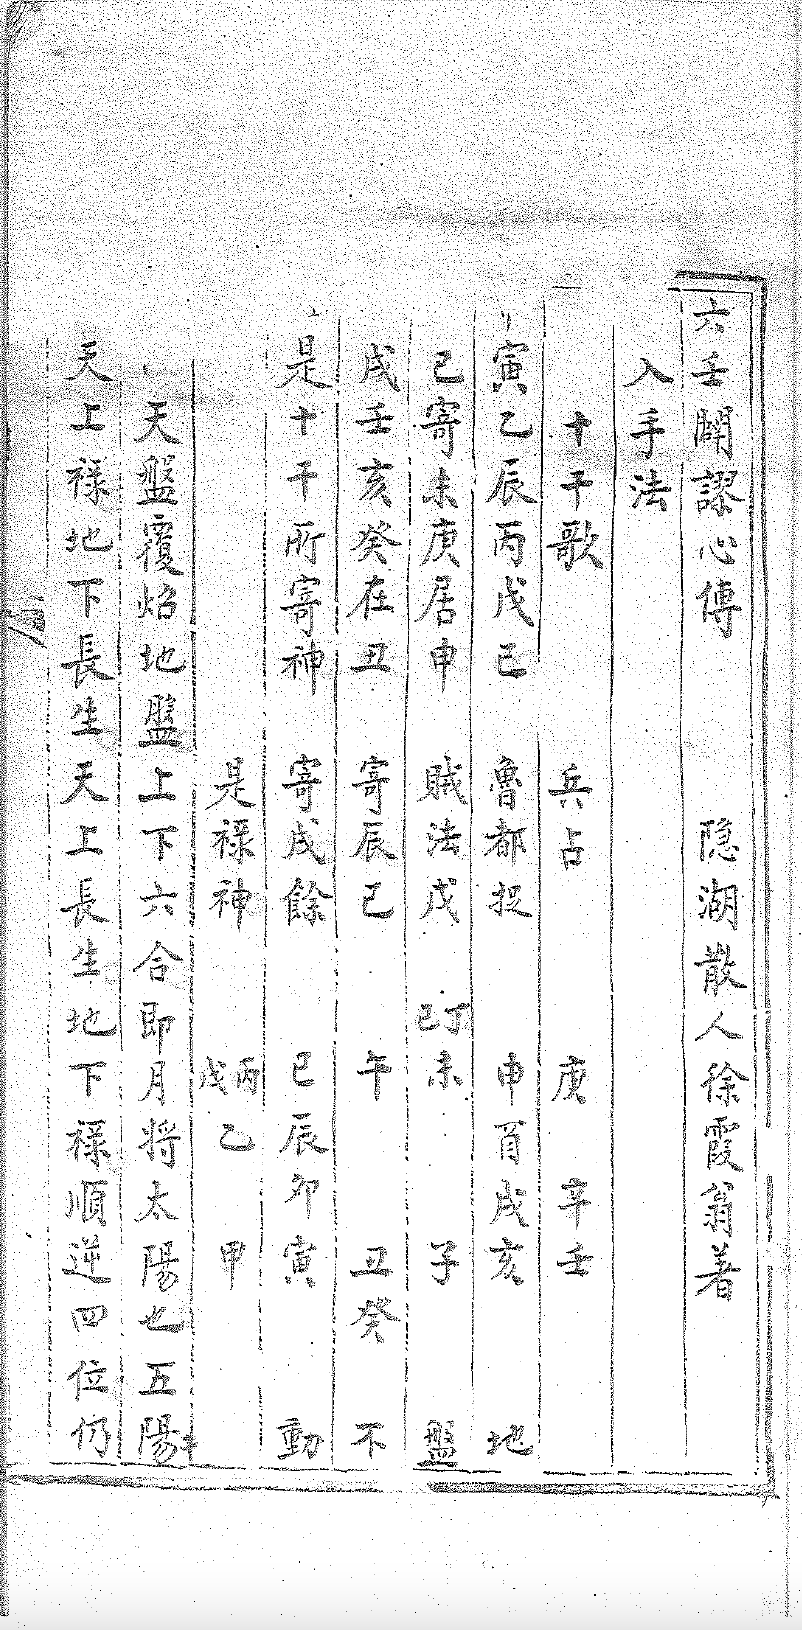 六壬闢謬心傳 隐湖散人徐霞翁著
入手法
十干歌 兵占 庚 辛壬
寅乙辰丙戊巳 魯都捉 申酉戌亥 地
己寄未庚居申 賊法戊 丁巳未 子 盤
戌壬亥癸在丑 寄辰巳 午 丑癸 不
是十干所寄神 寄戌餘 巳辰卯寅 動
是禄神 丙戊乙 甲
天盤覆焰地盤上下六合即月将太陽也五陽
天上禄地下長生天上長生地下禄順逆四位仍